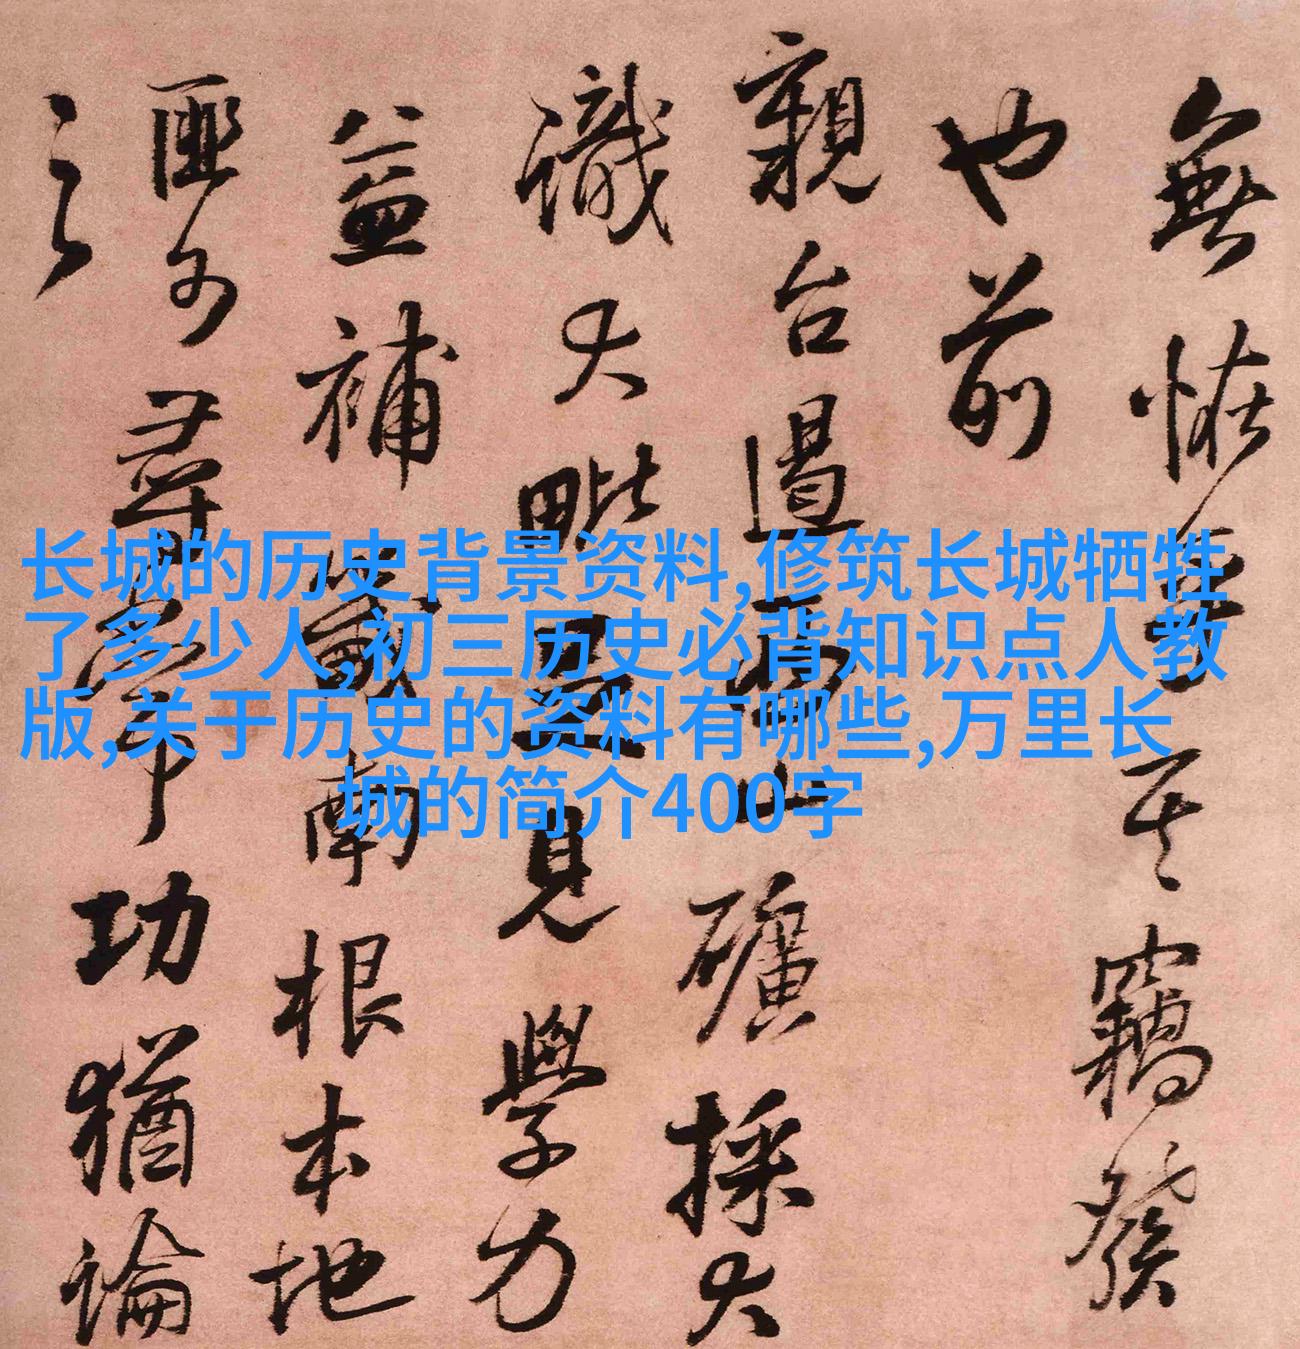 無恠其竊發
也前
親台礦採大
識大毗見學力
益補南根本地
匪尋常功猶論
之
长城的历史背景资料,修筑长城牺牲
了多少人,初三历史必背知识点人教
版,关于历史的资料有哪些,万里长
城的简介400字